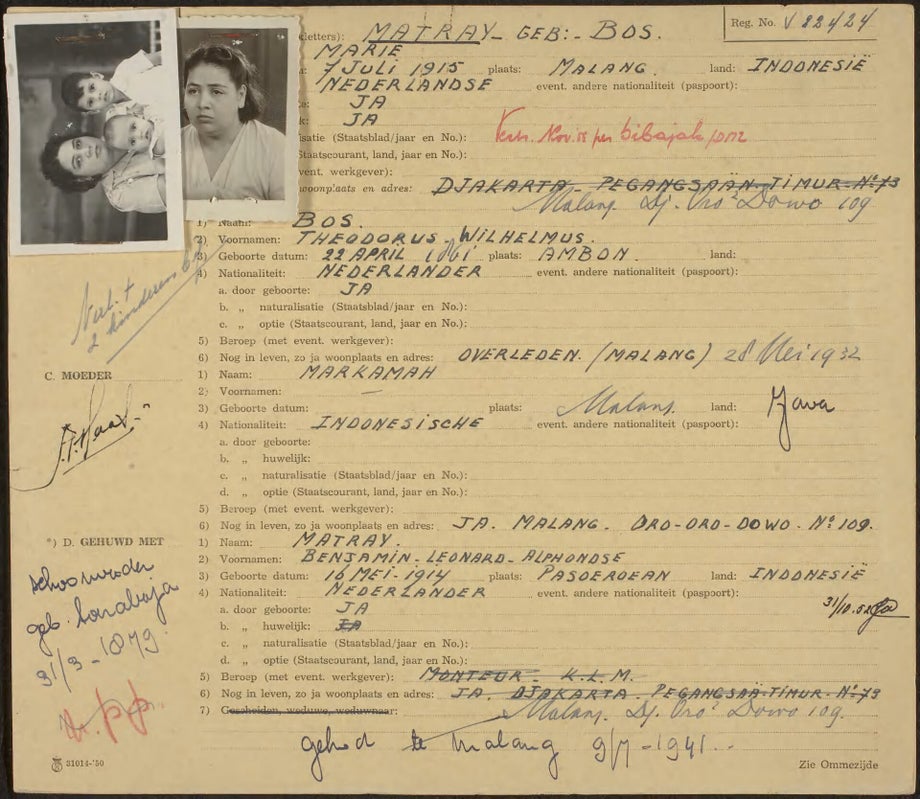 Reg. No. V 22424
letters): MATRAY - GEB: - BOS.
MARIE
7 JULI 1915 plaats: MALANG. land: INDONESIË
NEDERLANDSE event. andere nationaliteit (paspoort):
JA
k: JA
isatie (Staatsblad/jaar en No.): Nov. 55 per
Staatscourant, land, jaar en No.):
vent. werkgever):
woonplaats en adres: DJAKARTA - PEGANGSAÄN-TIMUR-No 73
Malang Dj. Oro² Dowo 109
1) Naam: BOS.
2) Voornamen: THEODORUS - WILHELMUS.
3) Geboorte datum: 22 APRIL 1861 plaats: AMBON. land:
4) Nationaliteit: NEDERLANDER event. andere nationaliteit (paspoort):
a. door geboorte: JA
b. „ naturalisatie (Staatsblad/jaar en No.):
c. „ optie (Staatscourant, land, jaar en No.):
5) Beroep (met event. werkgever):
6) Nog in leven, zo ja woonplaats en adres: OVERLEDEN. (MALANG) 28 Mei 1932
2 kinderen
C. MOEDER
1) Naam: MARKAMAH
2) Voornamen: —
3) Geboorte datum: plaats: Malang. land: Java
4) Nationaliteit: INDONESISCHE event. andere nationaliteit (paspoort):
a. door geboorte:
b. „ huwelijk:
c. „ naturalisatie (Staatsblad/jaar en No.):
d. „ optie (Staatscourant, land, jaar en No.):
5) Beroep (met event. werkgever):
6) Nog in leven, zo ja woonplaats en adres: JA. MALANG. ORO-ORO-DOWO. No 109.
*) D. GEHUWD MET
1) Naam: MATRAY.
2) Voornamen: BENJAMIN - LEONARD - ALPHONDSE
3) Geboorte datum: 16 MEI - 1914 plaats: PASOEROEAN land: INDONESIË
4) Nationaliteit: NEDERLANDER event. andere nationaliteit (paspoort):
a. door geboorte: JA
31/10.52
b. „ huwelijk: JA
c. „ naturalisatie (Staatsblad/jaar en No.):
d. „ optie (Staatscourant, land, jaar en No.):
5) Beroep (met event. werkgever): MONTEUR - K.L.M.
6) Nog in leven, zo ja woonplaats en adres: JA. DJAKARTA. PEGANGSAÄ-TIMUR. No 73
7) Gescheiden, weduwe, weduwnaar: Malang. Dj. Oro² Dowo 109.
schoonvader
geb. Soerabaja
31/3 - 1879.
te Malang 9/7 - 1941.
31014-'50
Zie Ommezijde